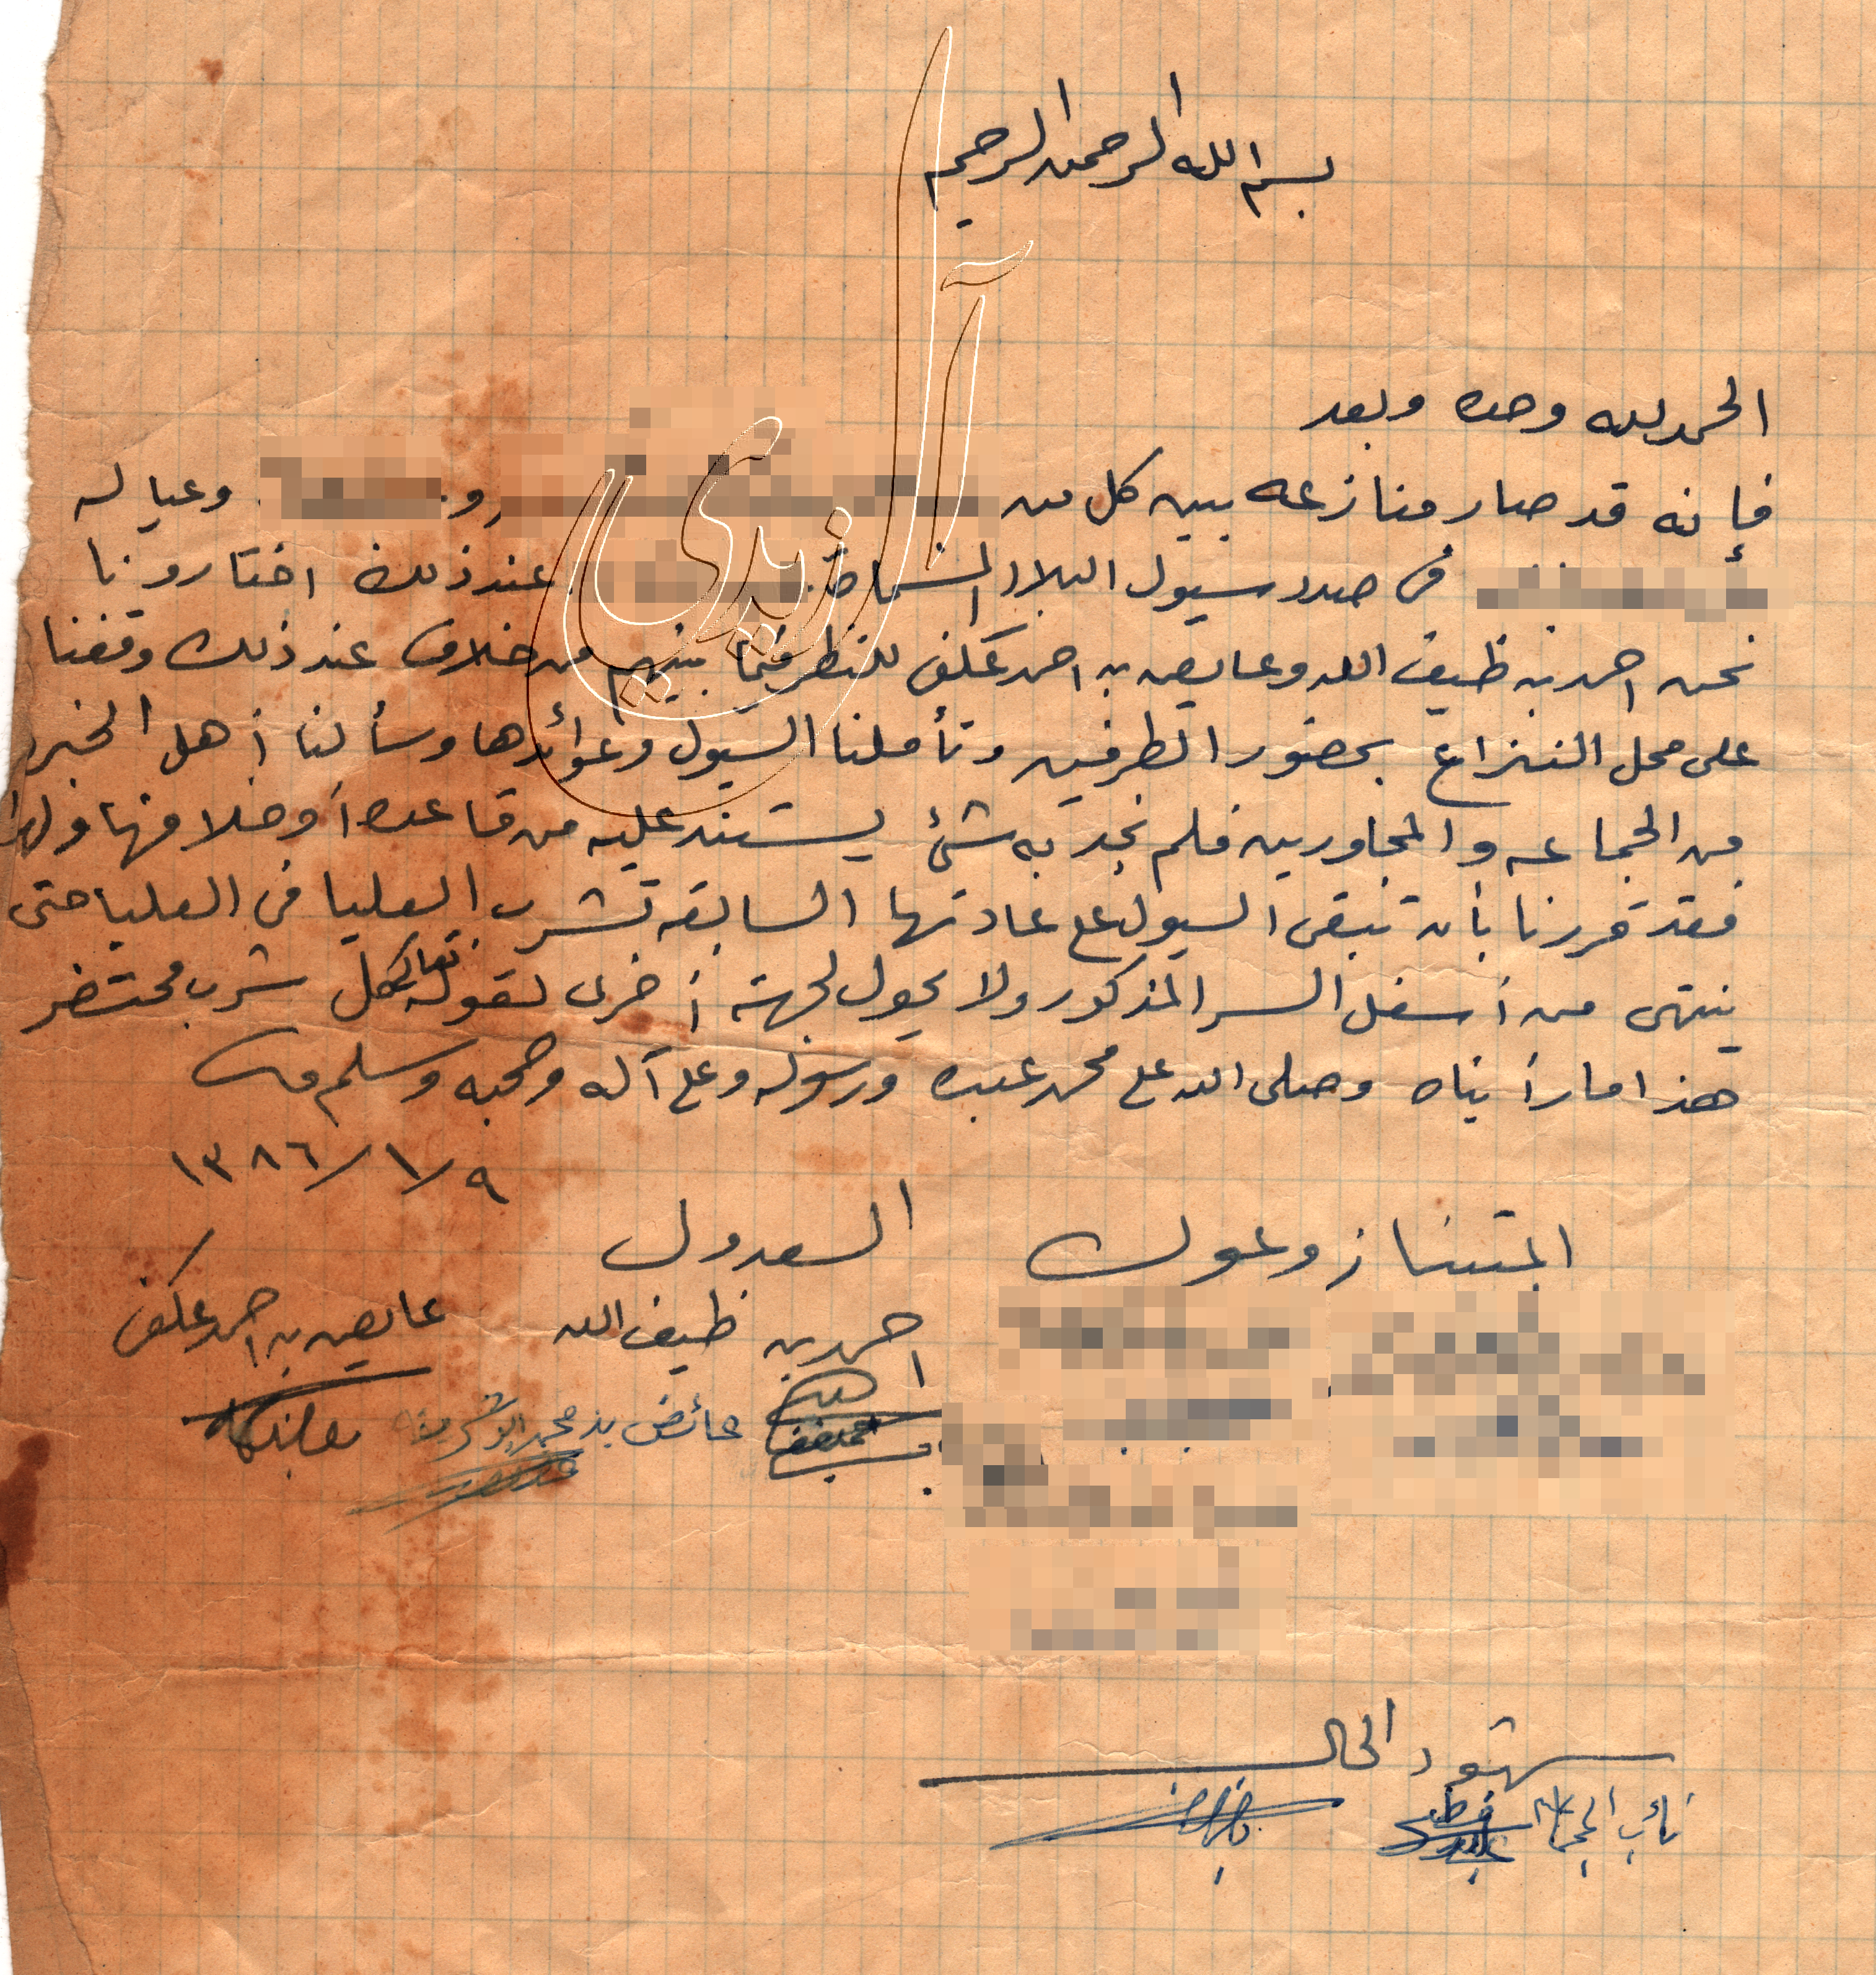 بسم الله الرحمن الرحيم
الحمد لله وحده وبعد
فإنه قد صار منازعه بين كل من و وعياله
في صدد سيول البلاد المسماة عند ذلك اختارونا
نحن احمد بن ظيف الله وعايض بن احمد علكف للنظر فيما بينهم من خلاف عند ذلك وقفنا
على محل النزاع بحضور الطرفين وتأملنا السيول وعوائدها وسألنا أهل الخبره
من الجماعه والمجاورين فلم نجد به شئ يستند عليه من قاعدة أو خلافها ولهذا
فقد قررنا بأن تبقى السيول على عادتها السابقه تشرب العليا في العليا حتى
ينتهي من أسفل السر المذكور ولا يحول لجهة أخرى لقوله تعالى كل شرب محتضر
هذا ما رأيناه وصلى الله على محمد عبده ورسوله وعلى آله وصحبه وسلم
١٣٨٦/١/٩
المتنازعون العدول
احمد بن ظيف الله عايض بن احمد علكف
عائض بن محمد
شهود الحال
نائب